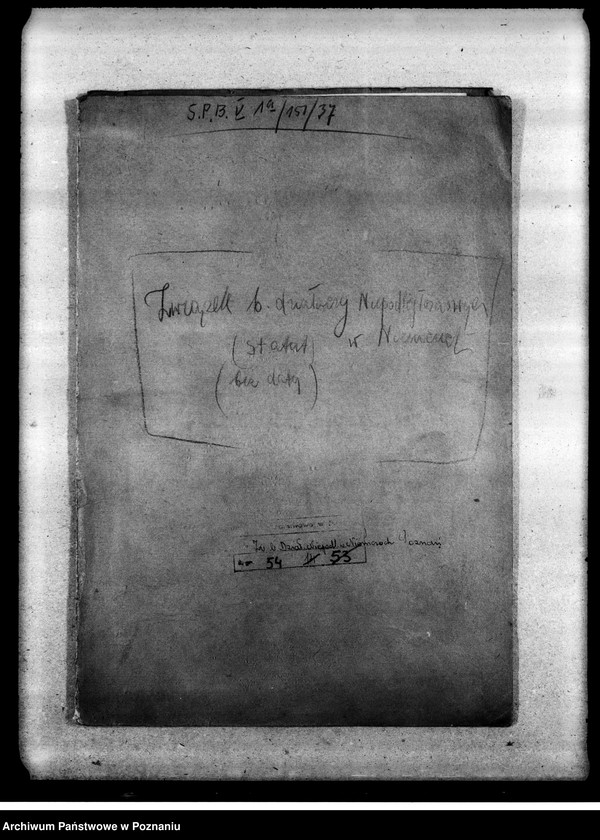 S.P.B. V 1a/151/37
Związek b. działaczy Niepodległościowych
(statut) w Niemczech
(bez daty)
Zw. b. Dział. Niepodl. w Niemczech Poznań
54 53
Archiwum Państwowe w Poznaniu